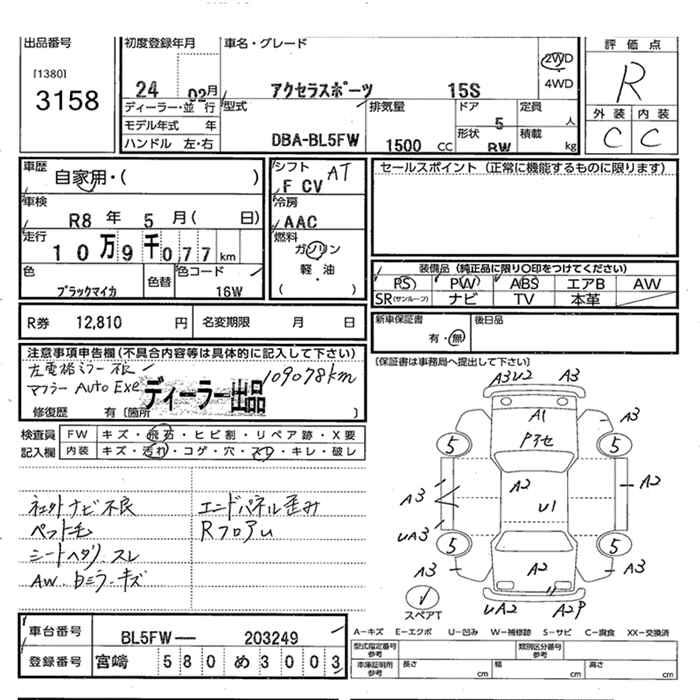 出品番号 初度登録年月 車名・グレード 評価点
[1380]
3158
24 02月 アクセラスポーツ 15S
2WD
4WD
R
ディーラー・並行 型式 排気量 ドア 定員 外装 内装
モデル年式 年 5 人 C C
ハンドル 左・右 DBA-BL5FW 1500 CC 形状 BW 積載 kg
車歴 自家用・( ) シフト F CV AT セールスポイント (正常に機能するものに限ります)
車検 R8 年 5 月( 日) 冷房 AAC
走行 10万9千077 km 燃料 ガソリン
軽・油
( )
色 ブラックマイカ 色替 色コード 16W
装備品 (純正品に限り○印をつけてください)
PS PW ABS エアB AW
SR(サンルーフ) ナビ TV 本革
R券 12,810 円 名変期限 月 日 新車保証書 有・無 後日品
注意事項申告欄(不具合内容等は具体的に記入して下さい) [保証書は事務局へ提出して下さい]
左電格ミラー不良
マフラー Auto Exe ディーラー出品 109078km
修復歴 有 [箇所
検査員 FW キズ・飛石・ヒビ割・リペア跡・X要
記入欄 内装 キズ・汚れ・コゲ・穴・スリ・キレ・破レ
ナビ不良 エンドパネル歪み
ペット毛 Rフロアム
シートヘタリ.スレ
AW.ミラ.キズ
A3U2 A3
A3 A1 A3
P3セ
5 5
A3 A2 A2
UA3 U1
5 5
A3 A2 A3
スペアT UA2 A2P
車台番号 BL5FW— 203249
登録番号 宮崎 580 め3003
A―キズ E―エクボ U―凹み W―補修跡 S―サビ C―腐食 XX―交換済
型式指定番号 参考 類別区分番号 参考
車庫証明所 参考 長さ cm 幅 cm 高さ cm